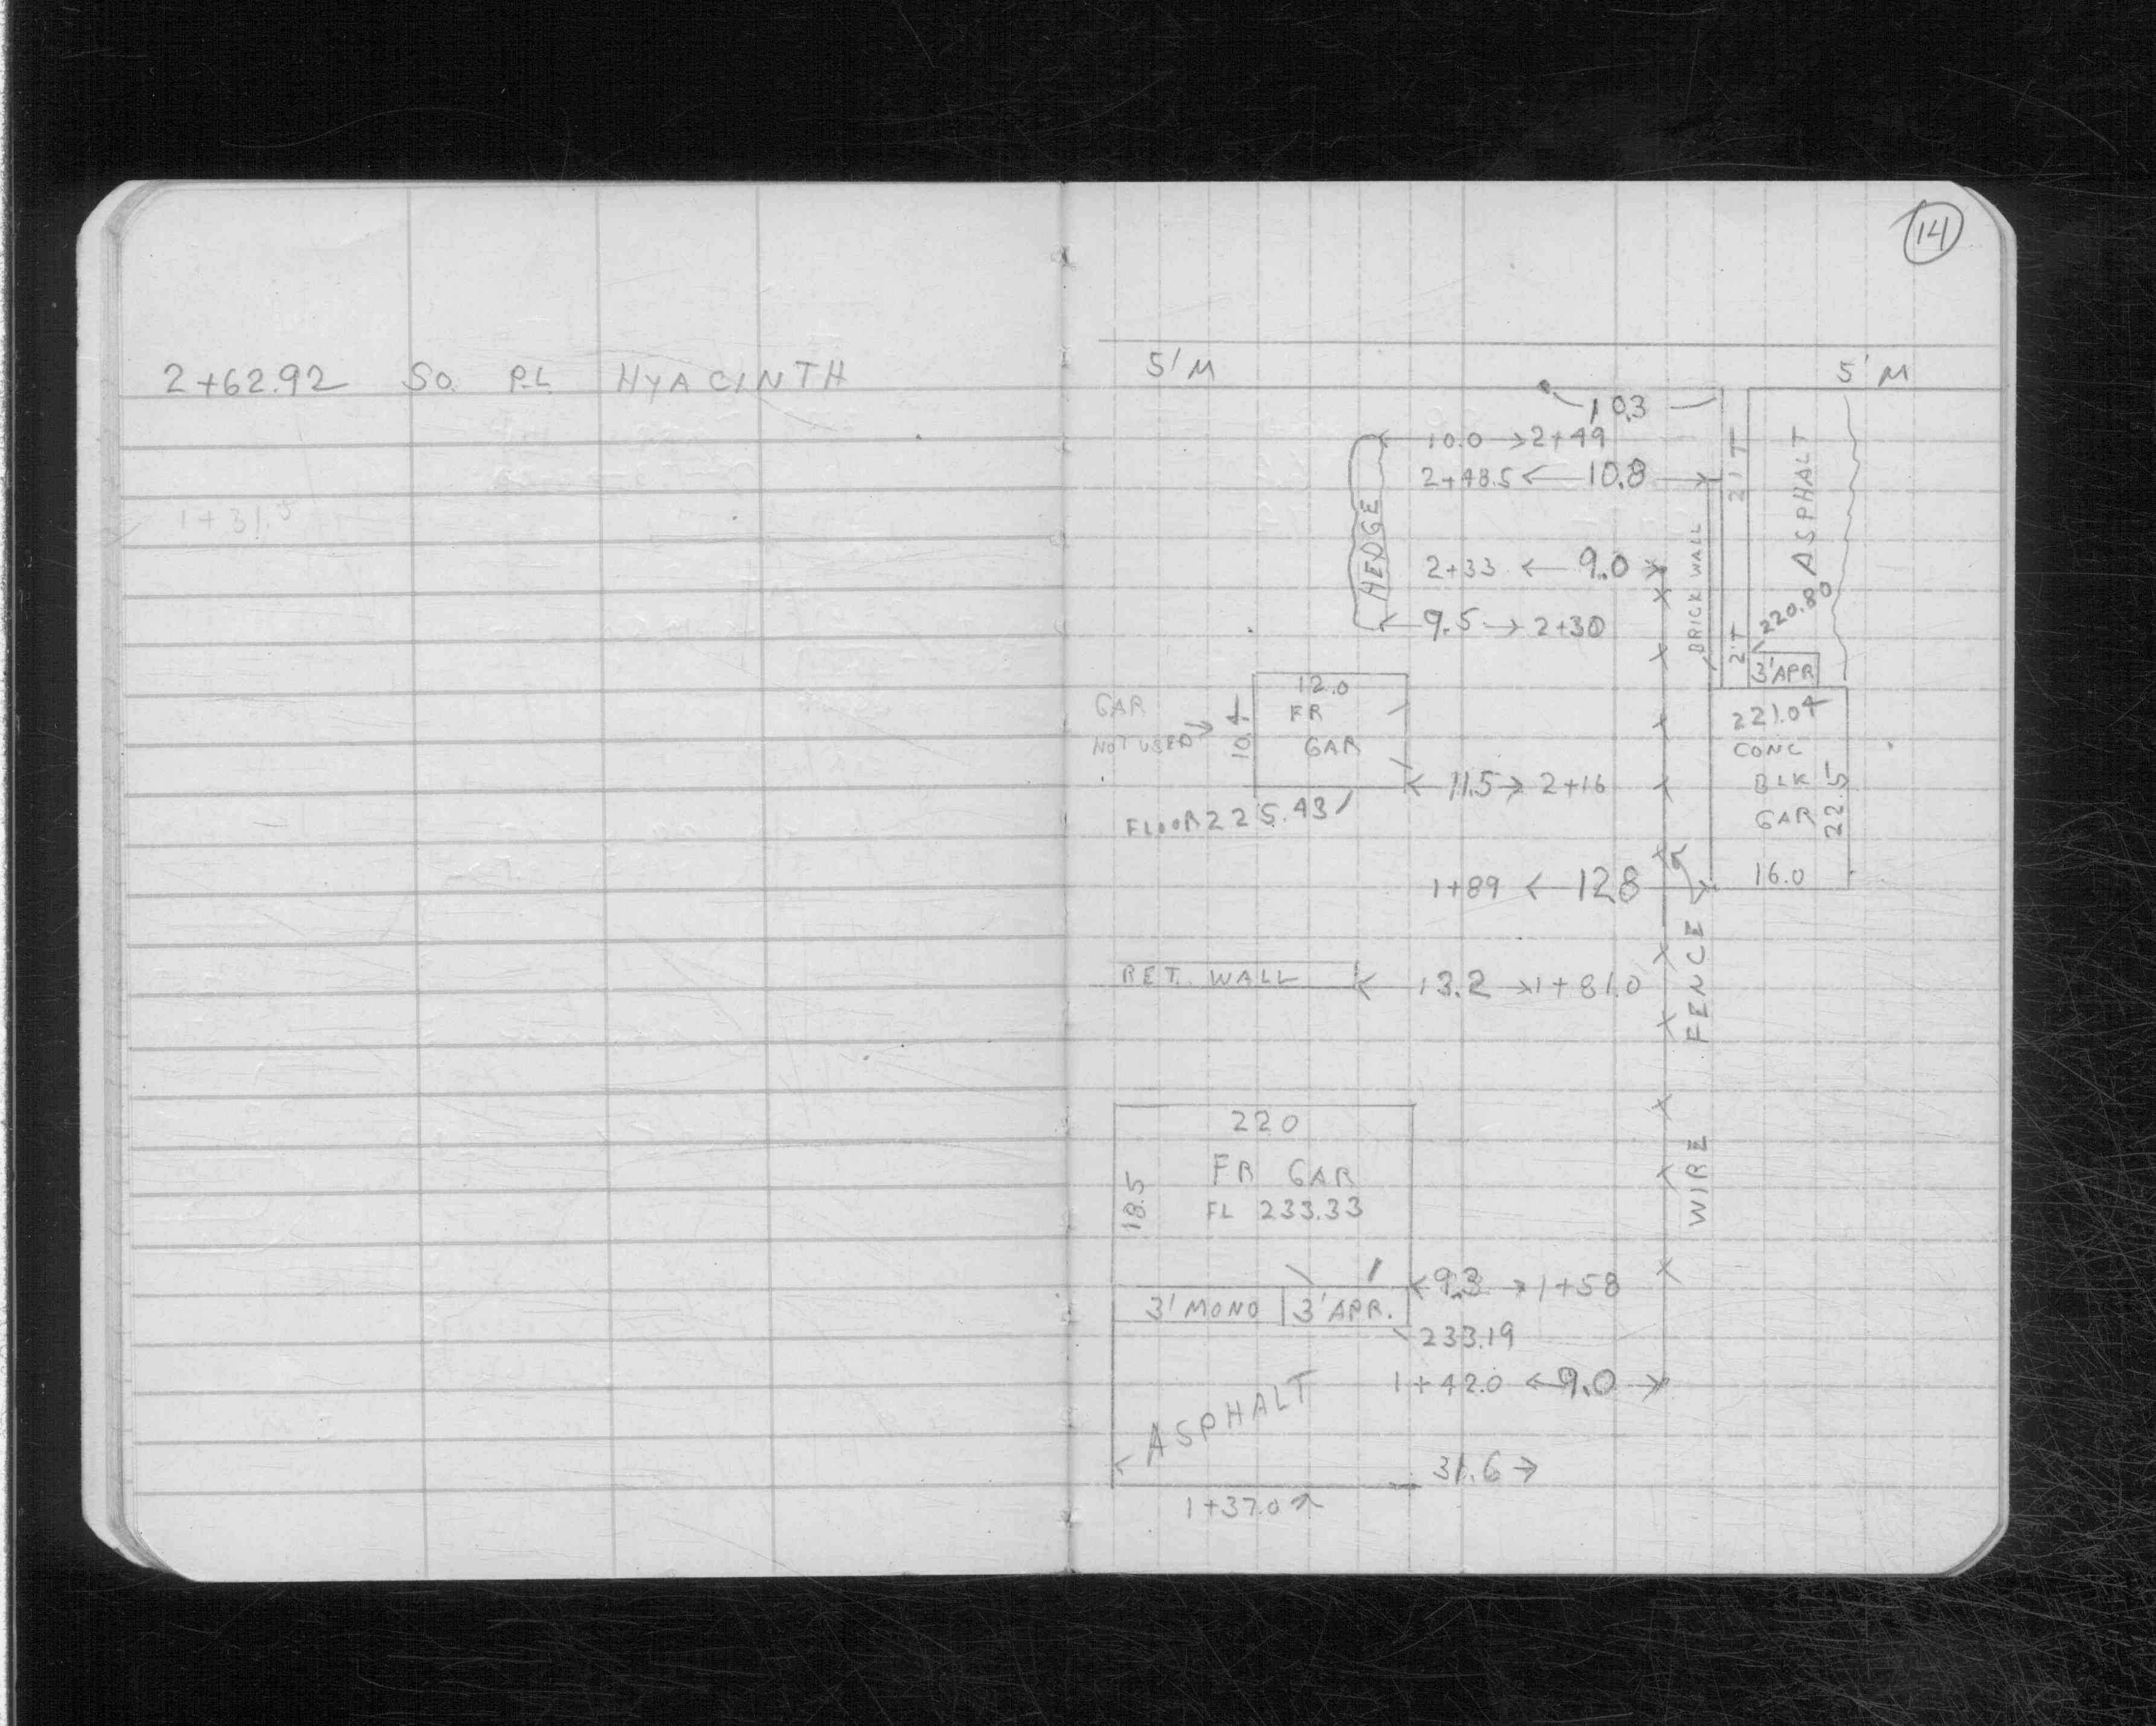 2+62.92 SO. P.L HYACINTH
1+31.5
14
5' M
5' M
10.3
10.0 → 2+49
2+48.5 ← 10.8 →
HEDGE
2'T
ASPHALT
BRICK WALL
2+33 ← 9.0 →
220.80
9.5 → 2+30
2'T
3' APR
12.0
FR
GAR
10.4
GAR
NOT USED →
221.04
CONC
BLK
GAR
22.5
16.0
← 11.5 → 2+16
FLOOR 225.43
1+89 ← 12.8 →
RET. WALL
← 13.2 → 1+81.0
WIRE FENCE
220
FR GAR
FL 233.33
18.5
← 9.3 → 1+58
3' MONO
3' APR.
233.19
1+42.0 ← 9.0 →
ASPHALT
← 31.6 →
1+37.0